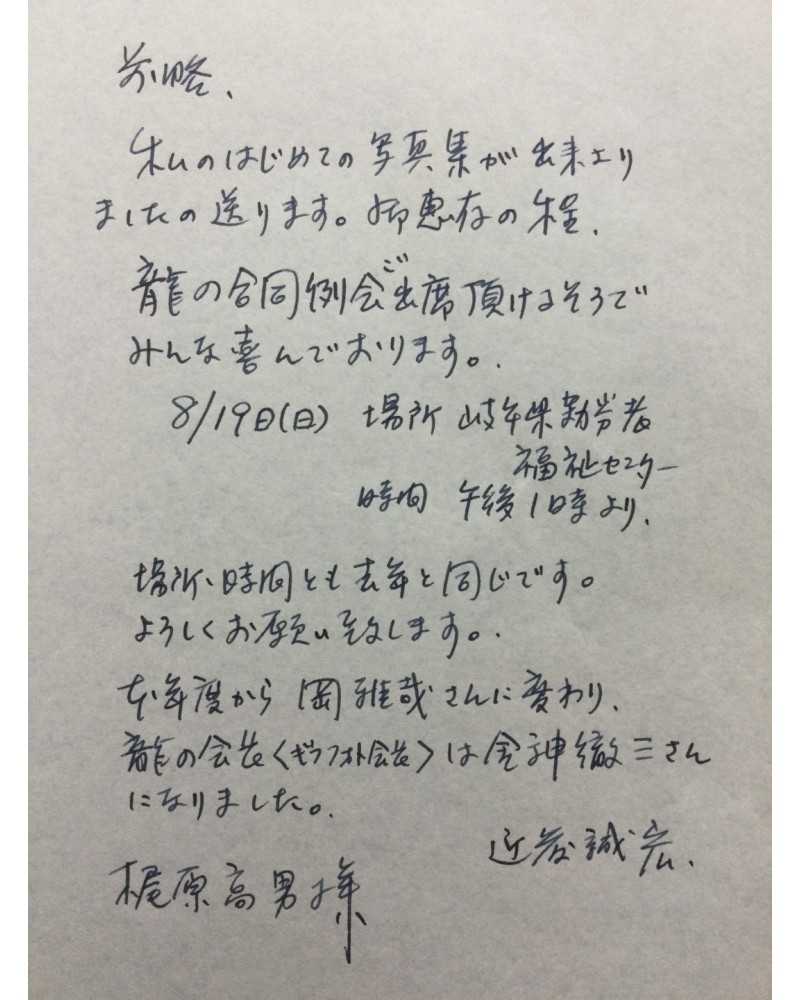 前略、
私のはじめての写真集が出来上り
ましたの送ります。御恵存の程、
龍の合同例会ご出席頂けるそうで
みんな喜んでおります。
8/19日(日) 場所 岐阜県勤労者
福祉センター
時間 午後1時より、
場所、時間とも去年と同じです。
よろしくお願い致します。
本年度から 岡雅哉さんに変わり、
龍の会長〈ギフフォト会長〉は金神徹三さん
になりました。
近藤誠宏、
梶原高男様